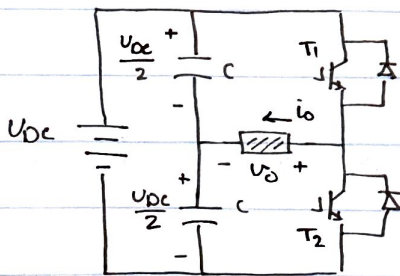 U_DC
U_DC/2
+
-
C
T1
i_o
- U_o +
+
U_DC/2
-
C
T2